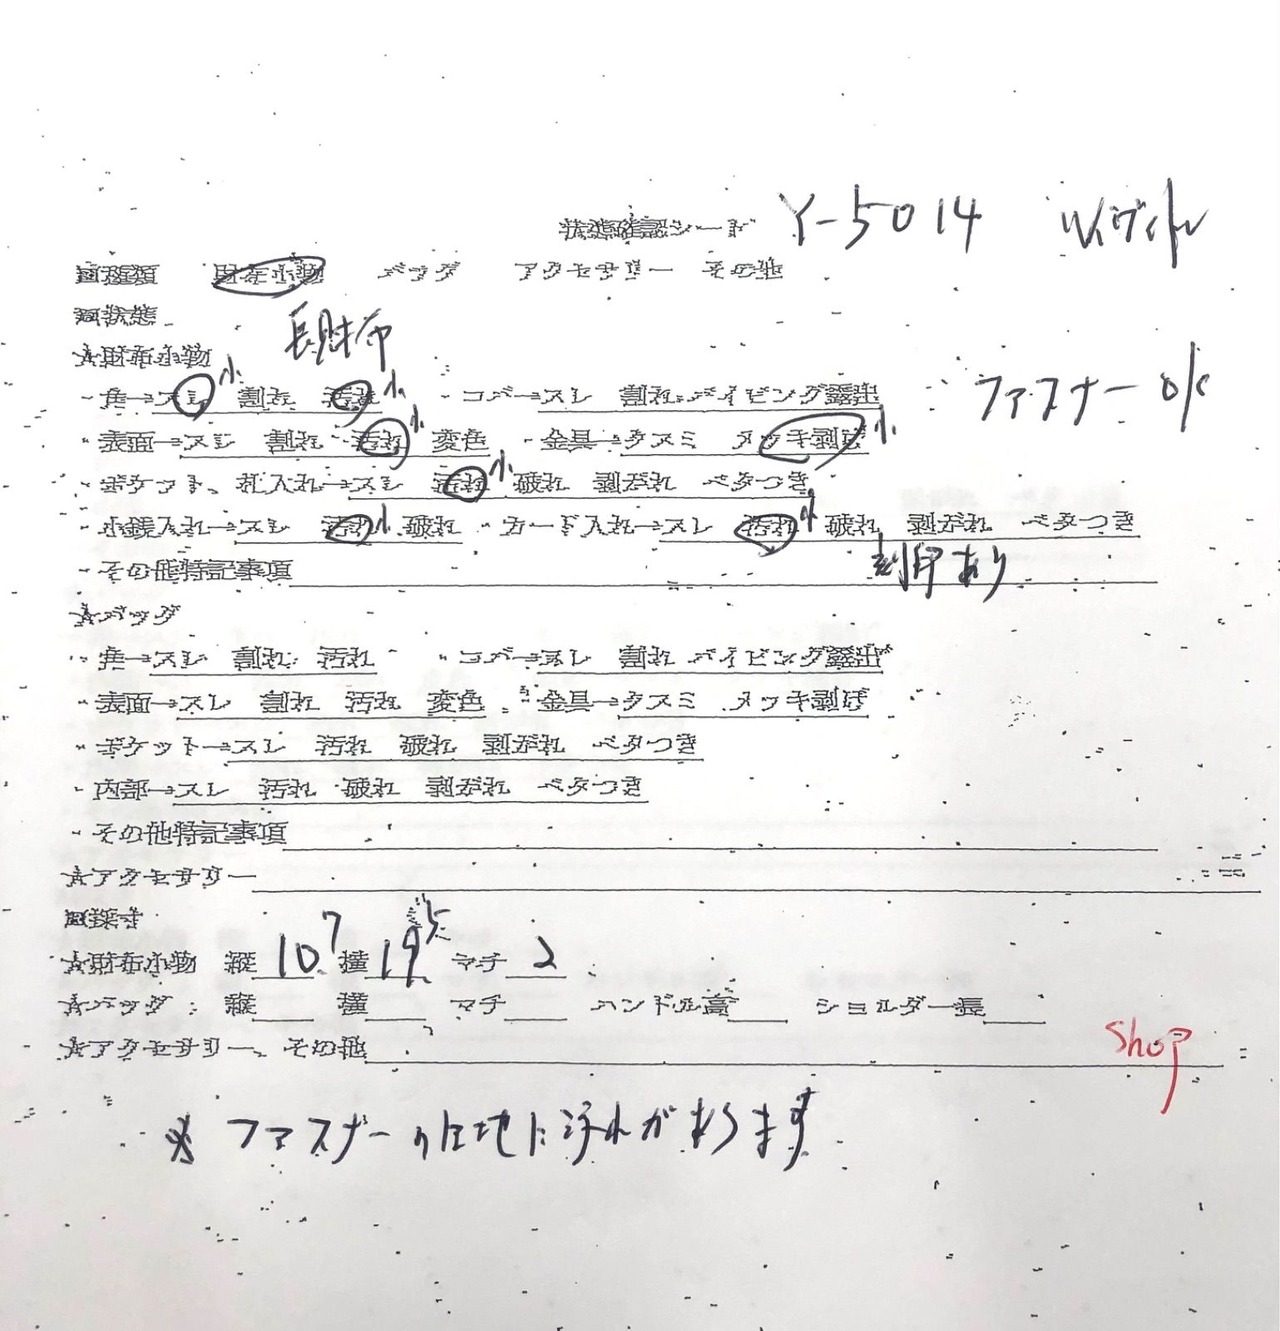 状態確認シード Y-5014 ルイヴィトン
■種類 財布小物 バッグ アクセサリー その他
■状態
長財布
☆財布小物
・角→スレ 小 割れ 汚れ 小 ・コバ→スレ 割れ パイピング露出 ファスナーOK
・表面→スレ 割れ 汚れ 小 変色 ・金具→クスミ メッキ剥げ 小
・ポケット、札入れ→スレ 汚れ 小 破れ 剥がれ ベタつき
・小銭入れ→スレ 汚れ 小 破れ ・カード入れ→スレ 汚れ 小 破れ 剥がれ ベタつき
・その他特記事項 刻印あり
☆バッグ
・角→スレ 割れ 汚れ ・コバ→スレ 割れ パイピング露出
・表面→スレ 割れ 汚れ 変色 ・金具→クスミ メッキ剥げ
・ポケット→スレ 汚れ 破れ 剥がれ ベタつき
・内部→スレ 汚れ 破れ 剥がれ ベタつき
・その他特記事項
☆アクセサリー
■採寸
☆財布小物 縦 10 7 横 19 5 マチ 2
☆バッグ 縦 横 マチ ハンドル高 ショルダー長
☆アクセサリー、その他
Shop
※ファスナーの生地に汚れがあります